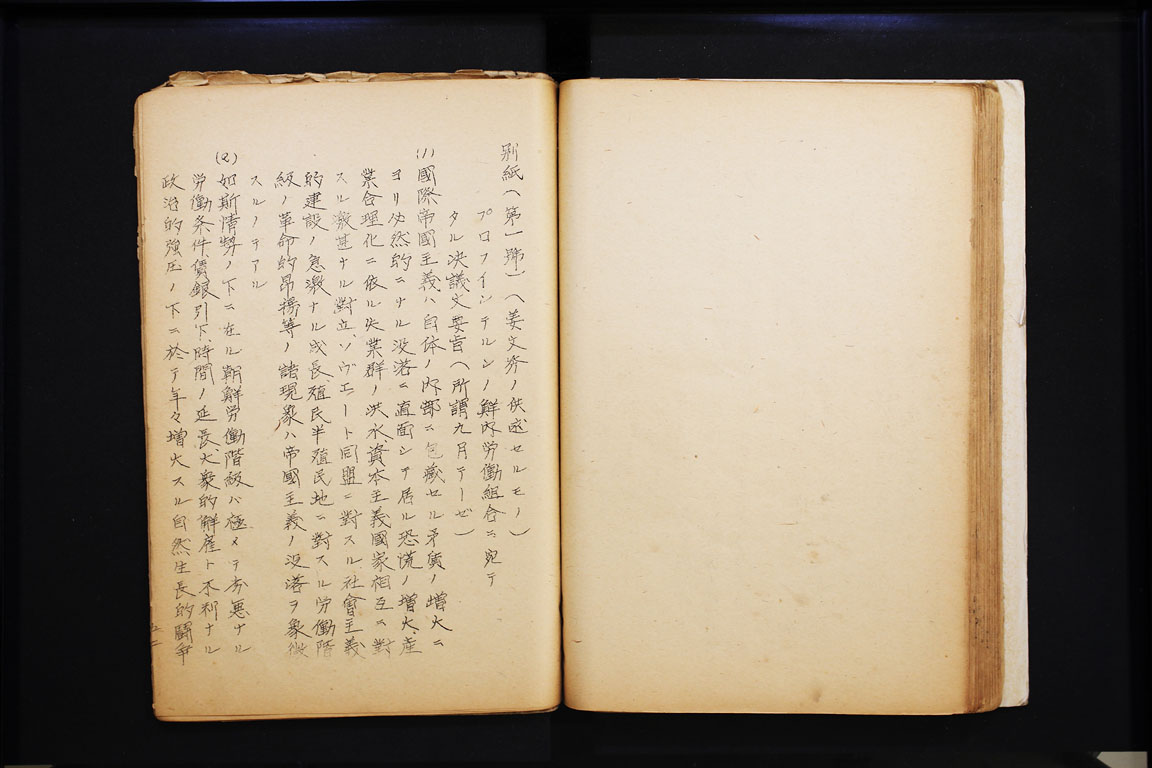 別紙(第一號)(姜文秀ノ供述セルモノ)
プロフインテルンノ鮮内労働組合ニ宛テ
タル决議文要旨(所謂九月テーゼ)
(1) 國際帝國主義ハ自体ノ内部ニ包藏セル矛盾ノ増大ニ
ヨリ必然的ニナル没落ニ直面シテ居ル恐慌ノ増大、産
業合理化ニ依ル失業群ノ洪水、資本主義國家相互ニ對
スル激甚ナル對立、ソヴエート同盟ニ對スル社會主義
的建設ノ急激ナル成長、殖民半殖民地ニ對スル労働階
級ノ革命的昂揚等ノ諸現象ハ帝國主義ノ没落ヲ象徴
スルノテアル
(2) 如斯情勢ノ下ニ在ル朝鮮労働階級ハ極メテ劣悪ナル
労働条件、賃銀引下、時間ノ延長、大衆的解雇ト不利ナル
政治的強圧ノ下ニ於テ年々増大スル自然生長的闘争